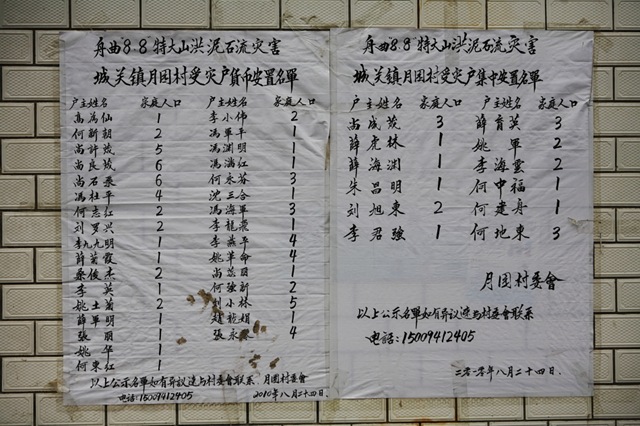 舟曲8.8特大山洪泥石流灾害
城关镇月园村受灾户货币安置名單
户主姓名 家庭人口 户主姓名 家庭人口
高为仙 1 李小偉 2
何新朝 2 馮軍平 1
尚許成 5 馮渊明 1
尚良成 6 馮满红 1
尚石義 6 何永芬 3
馮社平 4 沈三合 1
何志红 2 馮海軍 3
刘罗兴 2 李龍飛 1
李九明 1 李燕平 4
薛菊霞 1 姚革命 4
桑俊杰 2 尚蓝田 1
李英 1 何强新 2
姚土菊 2 刘小林 5
薛軍明 1 趙桂娟 1
張丽 1 張永 4
姚华 1
何東红 1
以上公示名單如有异议速与村委會联系 月园村委會
电话:15009412405 2010年八月二十四日.
舟曲8.8特大山洪泥石流灾害
城关镇月园村受灾户集中安置名單
户主姓名 家庭人口 户主姓名 家庭人口
尚成茂 3 薛育英 3
薛虎林 1 姚軍 2
薛海渊 1 李海雲 2
朱昌明 1 何中福 1
刘旭東 2 何建舟 1
李君强 1 何地東 3
月园村委會
以上公示名單如有异议速与村委會联系
电話:15009412405
二〇一〇年八月二十四日.